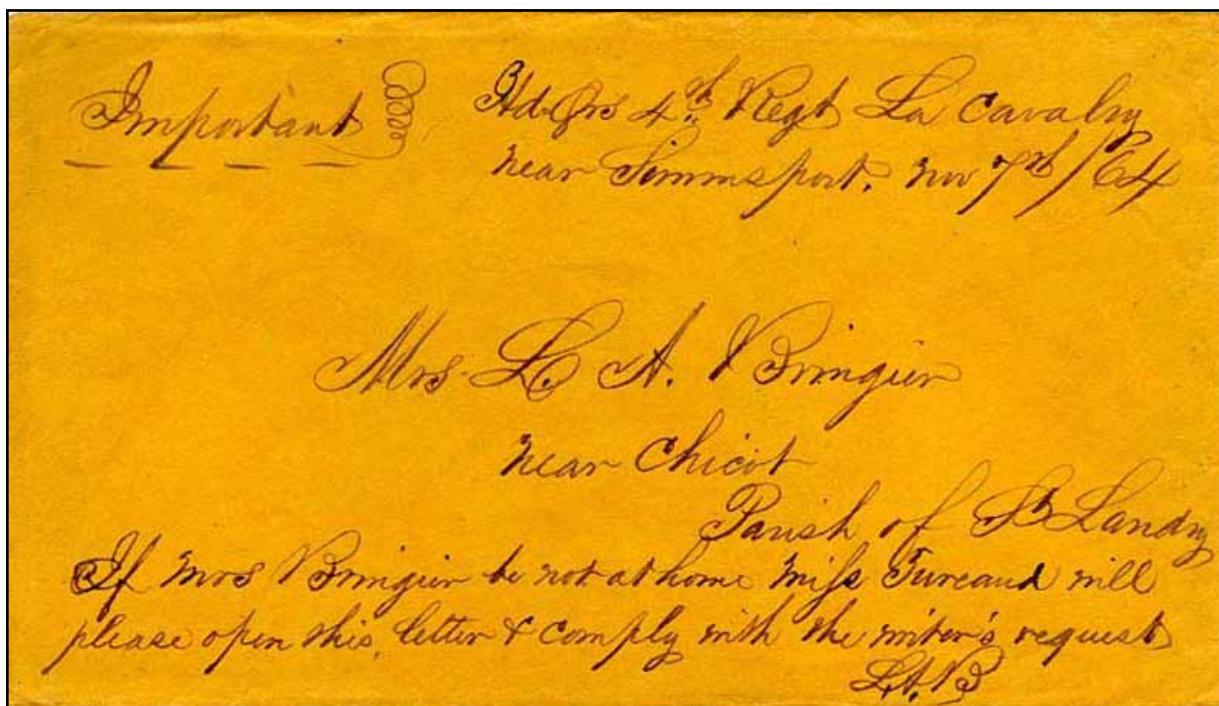 Important
Hd. Qrs 4th Regt La Cavalry
near Simmsport. Nov 7th /64
Mrs. L. A. Bringier
near Chicot
Parish of St Landry
If Mrs Bringier be not at home Miss Tureaud will
please open this letter & comply with the writer's request
L.A.B